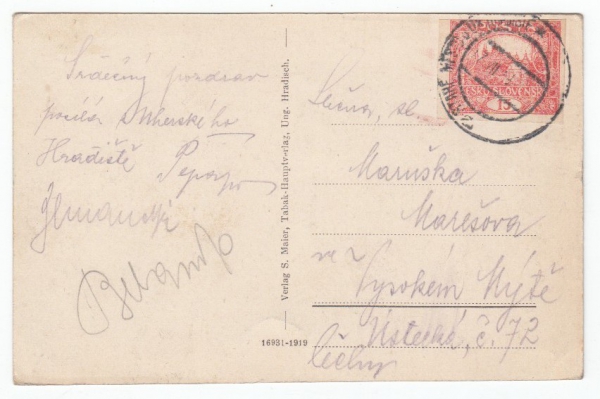 Srdečný pozdrav
posílá z Uherského
Hradiště
Verlag S. Maier, Tabak-Hauptverlag, Ung. Hradisch.
16931-1919
Slečna, sl.
Maruška
Marešova
ve
Vysokém Mýtě
Ústecká, č. 72
Čechy
ČESKO SLOVENSKÁ
15